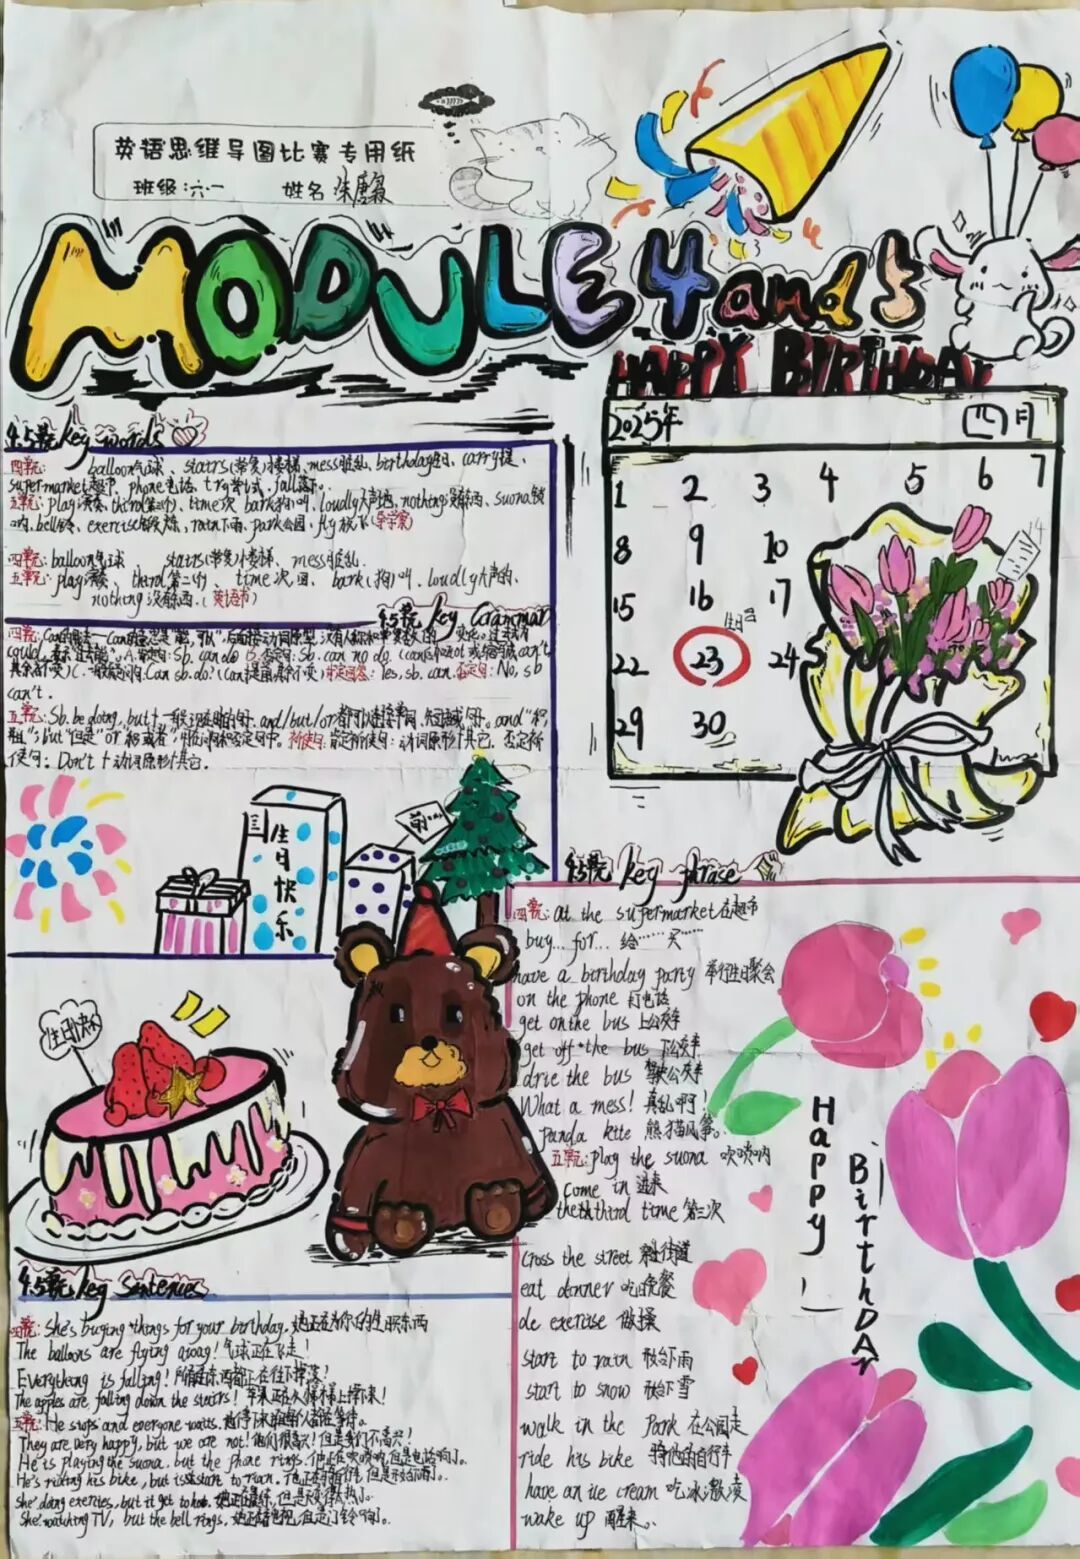 英语思维导图比赛专用纸
班级:六.一 姓名
MODULE 4 and 5
HAPPY BIRTHDAY
2025年 四月
1 2 3 4 5 6 7
8 9 10
15 16 17
生日
22 23 24
29 30
4.5单元 key words
四单元: balloon气球、stairs(常复)楼梯、mess脏乱、birthday生日、carry提、
supermarket超市、phone电话、try尝试、fall落下。
五单元: play演奏、third第三的、time次 bark狗叫、loudly大声地、nothing没有东西、suona唢
呐、bell铃、exercise锻炼、rain下雨、park公园、fly放飞(导学案)
四单元: balloon气球 stairs(常复)楼梯、mess脏乱
五单元: play演奏、third第三的、time次,回、bark(狗)叫、loudly大声的、
nothing没有东西.(英语书)
4.5单元 key Grammar
can't.
五单元: Sb. be doing, but + and/but/or
使句: Don't + 动词原形+其它.
生日快乐
生日快乐
4.5单元 key phrase
四单元: at the supermarket在超市
buy...for... 给……买……
have a birthday party 举行生日聚会
on the phone 打电话
get on the bus 上公交车
get off the bus 下公交车
drie the bus 驾驶公交车
What a mess! 真乱啊!
panda kite 熊猫风筝。
五单元: play the suona 吹唢呐
come in 进来
the third time 第三次
cross the street 街道
eat donner 吃晚餐
do exercise 做操
start to rain 开始下雨
start to snow 开始下雪
walk in the park 在公园走
ride his bike 骑他的自行车
have an ice cream 吃冰激凌
wake up 醒来。
Happy Birthday!
4.5单元 key Sentences
四单元: She's buying things for your birthday. 她正在为你的生日买东西
The balloons are flying away! 气球正在飞走!
Everything is falling! 所有东西都正在往下掉落!
The apples are falling down the stairs! 苹果正在从楼梯上掉下来!
五单元: He stops and everyone waits. 他停下来每个人都在等待。
They are very happy, but we are not! 他们很高兴!但是我们不高兴!
He is playing the suona. but the phone rings. 他正在吹唢呐,但是电话响了。
He's riding his bike, but start to rain. 他正在骑自行车,但是开始下雨了。
She' doing exercies, but it get to hot.
She' watching TV, but the bell rings. 她正在看电视,但是门铃响了。